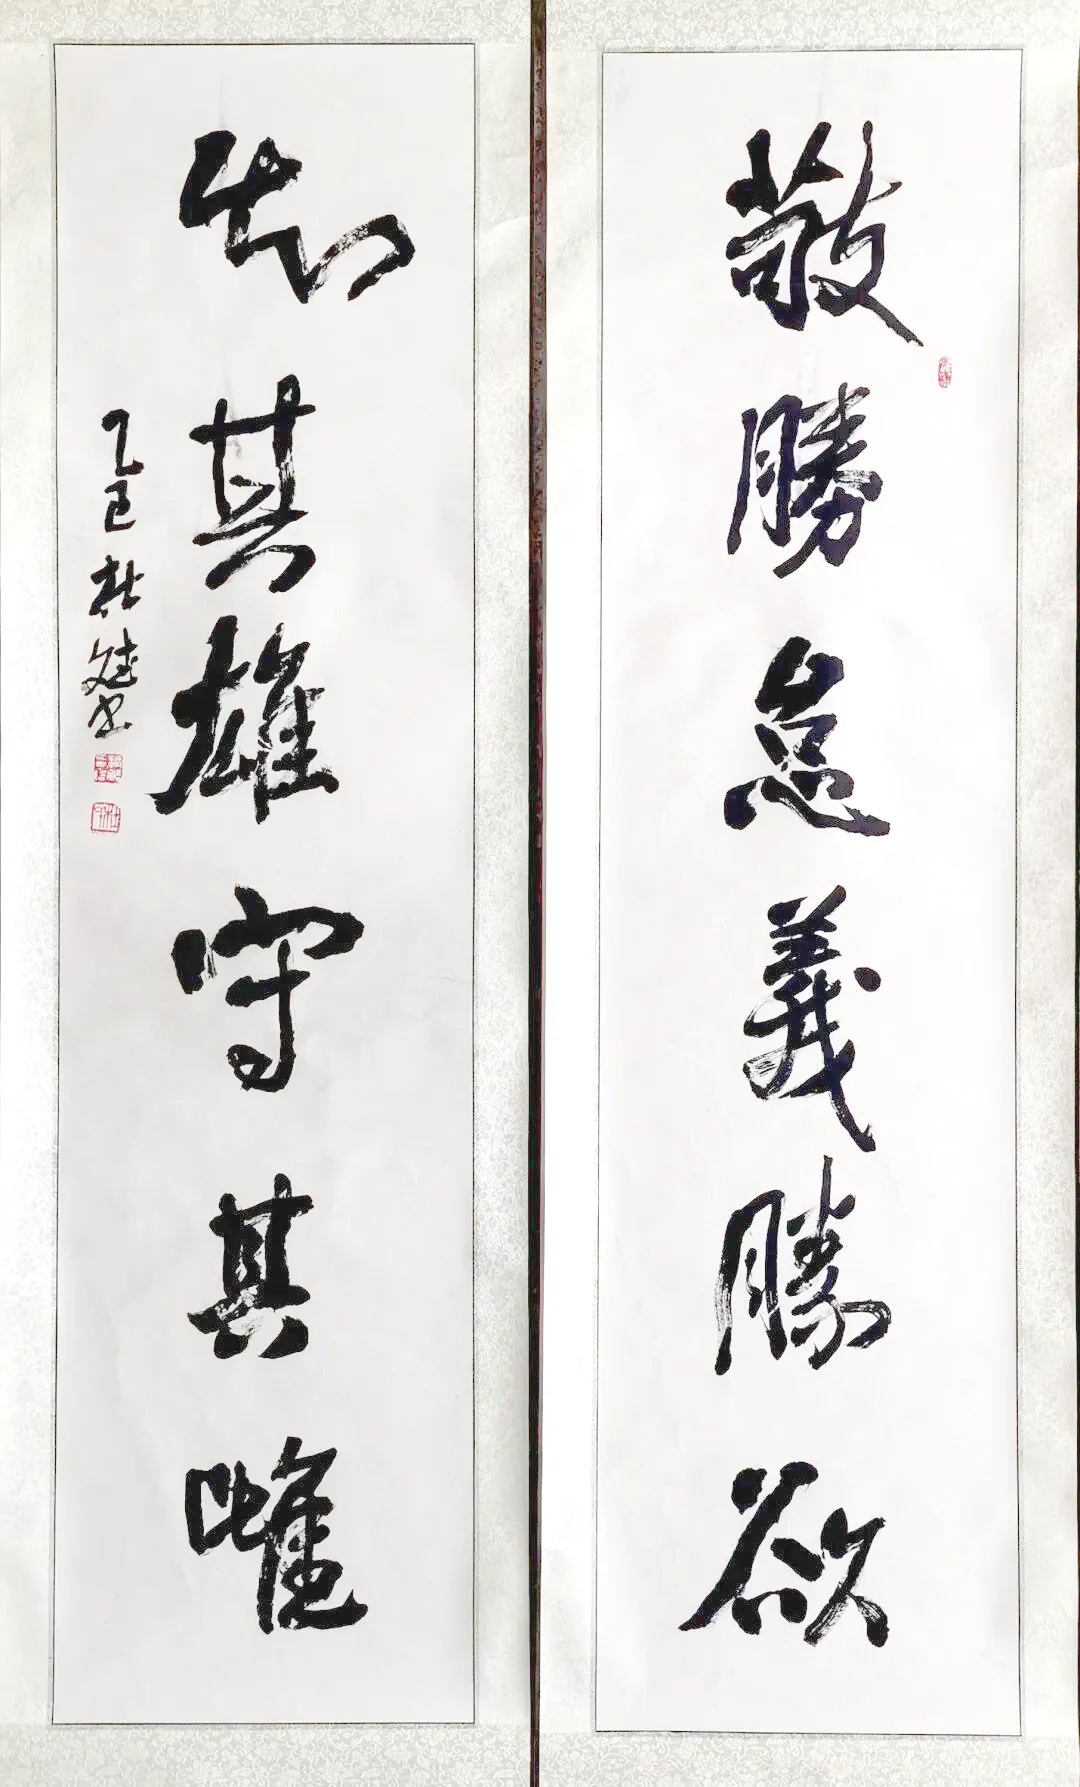 敬勝怠義勝欲
知其雄守其雌
乙巳杜斌书